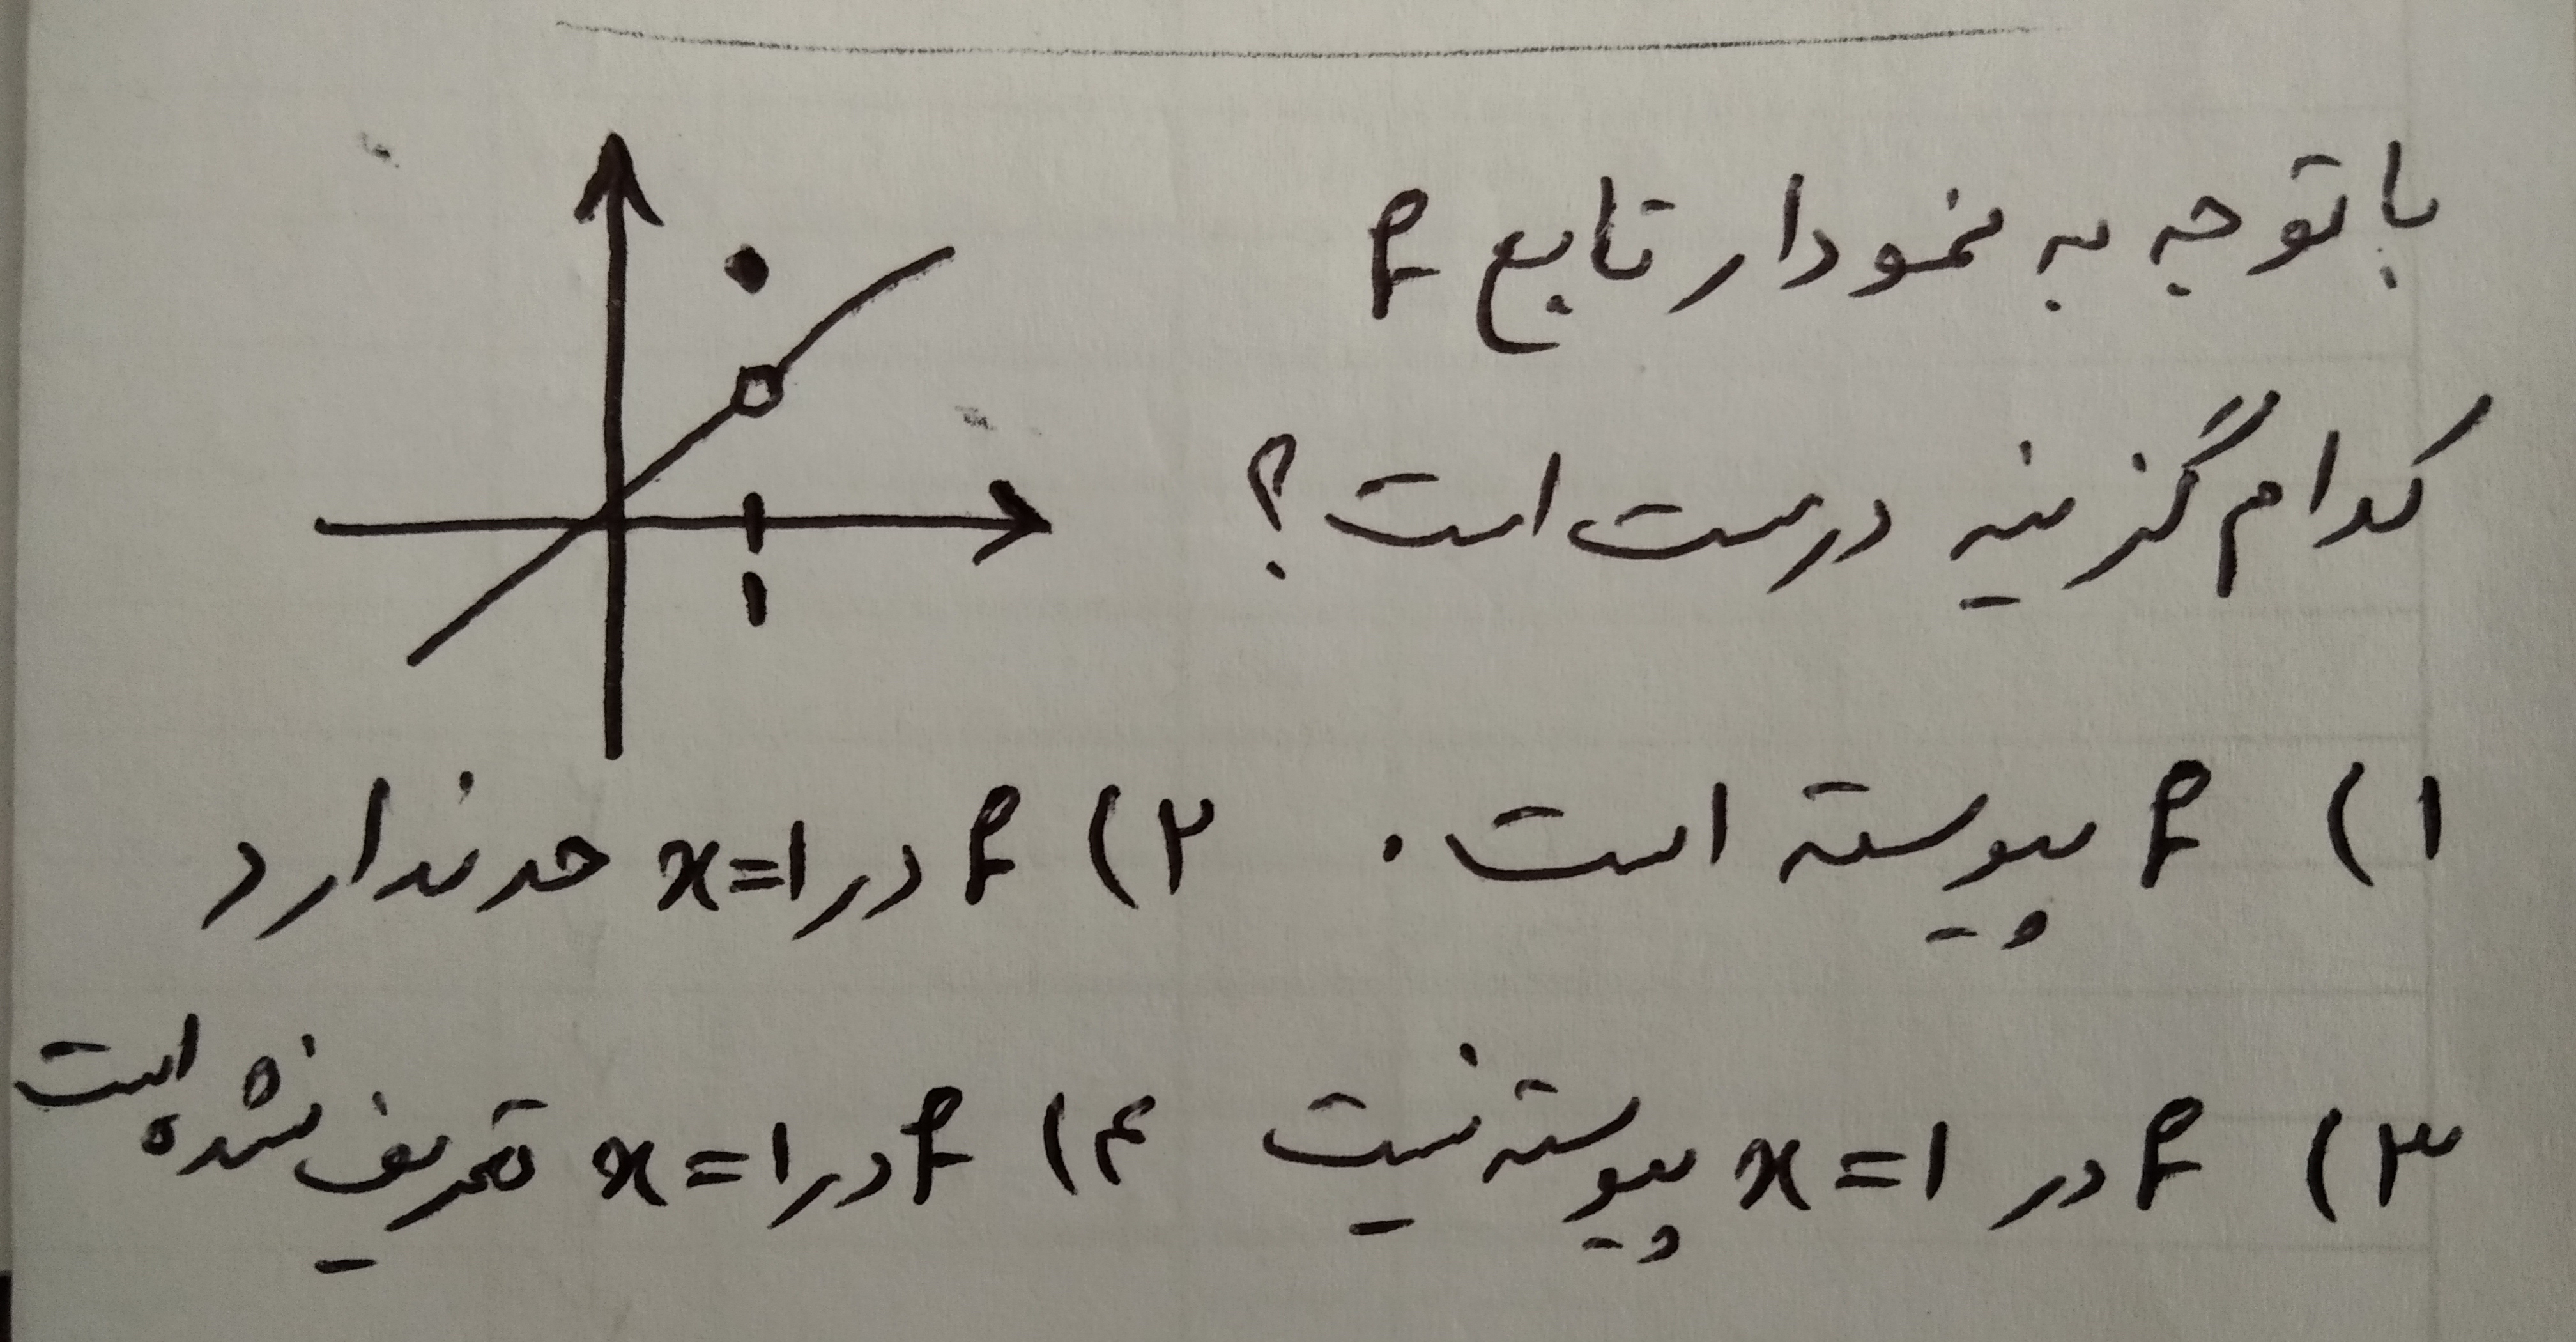 با توجه به نمودار تابع f
کدام گزینه درست است؟
1
۱) f پیوسته است. ۲) f در x=1 حد ندارد
۳) f در x=1 پیوسته نیست ۴) f در x=1 تعریف نشده است